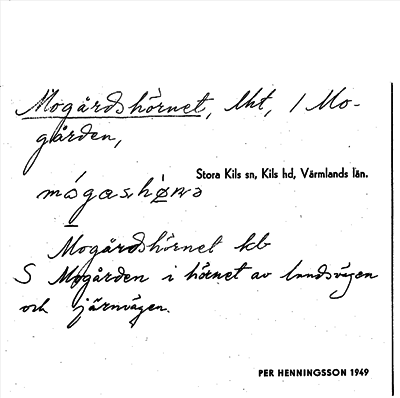 Mogårdshörnet, lht, / Mo-
gården,
Stora Kils sn, Kils hd, Värmlands län.
Mogårdshörnet kb
S Mogården i hörnet av landsvägen
och järnvägen.
PER HENNINGSSON 1949